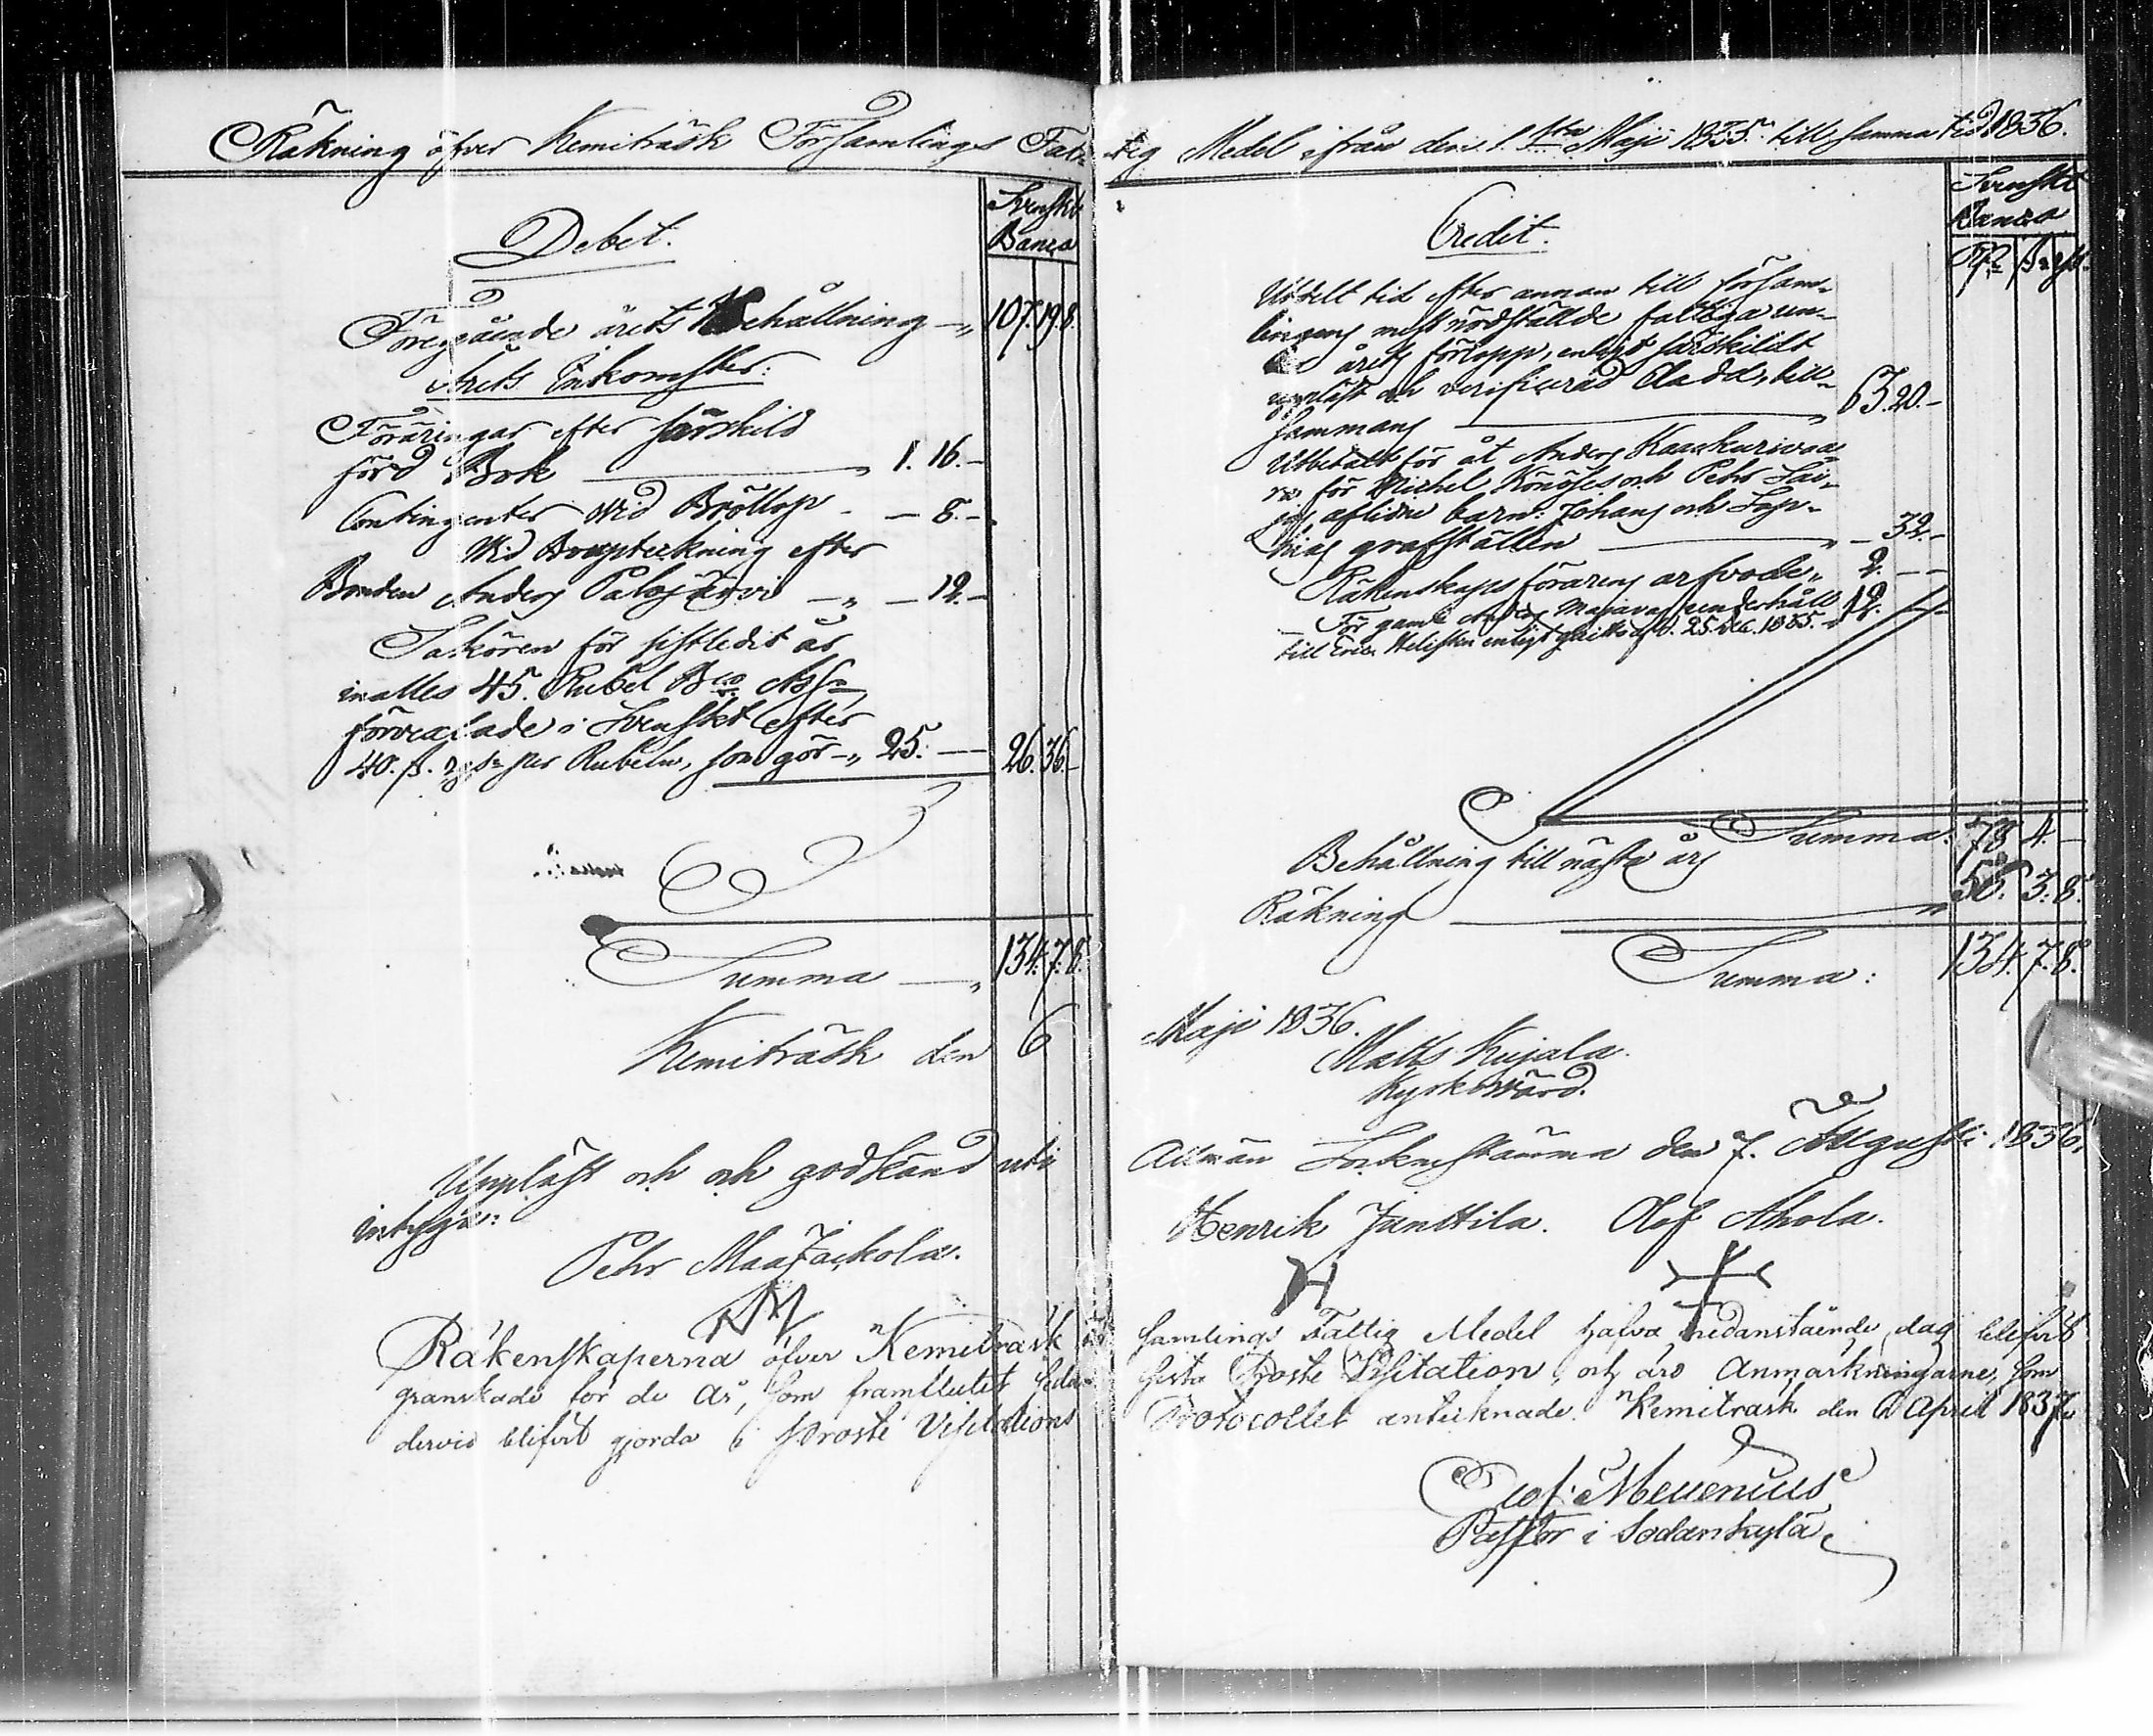 Räkning öfver Kemiträsk Församlings Fat-
Debet.
Svenskt
Banco
Föregående årets Behållning — „ 107. 19. 8.
Årets Inkomster:
Föräringar efter särskild
förd Bok — „ 1. 16. —
Contingenter vid Bröllop - — 8. —
Vid Arupteckning efter
Bonden Anders Palojärvi — „ — 12. —
Saköron för sistledit år
inalles 45. Rubel Bco Ass.
förvexlade i Svenskt efter
40. ß. rgs. per Rubeln, som gör — „ 25. — — 26. 36. —
Summa — „ 134. 7. 8.
Kemiträsk den 6
Uppläst och och godkänd uti
intyga:
Pehr Maajackola.
Räkenskaperna öfver Kemitrask
granskade för de År, som framflutit sedan
dervid blifvit gjorda i Proste Visitations
tig Medel ifrån den 1. sta Maji 1835. till samma tid 1836.
Credit.
Svenskt
Banco
Rd ß rgs.
Utdelt tid efter annan till församlingens
mest nödställde fattiga un-
årets förlopp, enligt särskildt
uppläst och verificerad Cladd, till-
sammans — „ 63. 20. —
Utbetalt för åt Anders Kaaskurivaa-
ra för Michel Könöses och Pehr Sai-
jas aflidne barn: Johans och Soph-
hias grafställen — „ — 32. —
Räkenskaps förarens arfvode „ 2. — —
För gamle Anders Majavas underhåll
till Eric Helistén enligt qvitto af d. 25. Dec. 1835. „ 12. —
Summa: 78. 4. —
Behållning till nästa års
Räkning — „ 56. 3. 8.
Summa: 134. 7. 8.
Maji 1836.
Matts Kujala.
Kyrkovärd.
Allmän Sockenstämma den 7. Augusti 1836,
Henrik Junttila. Olof Ahola.
samlings Fattig Medel hafva nedanstående dag blifvit
sista Proste Visitation, och äro Anmärkningarne, som
Protocollet antecknade. Kemitrask den 6 April 1837.
Mellenius
Pastor i Sodankylä